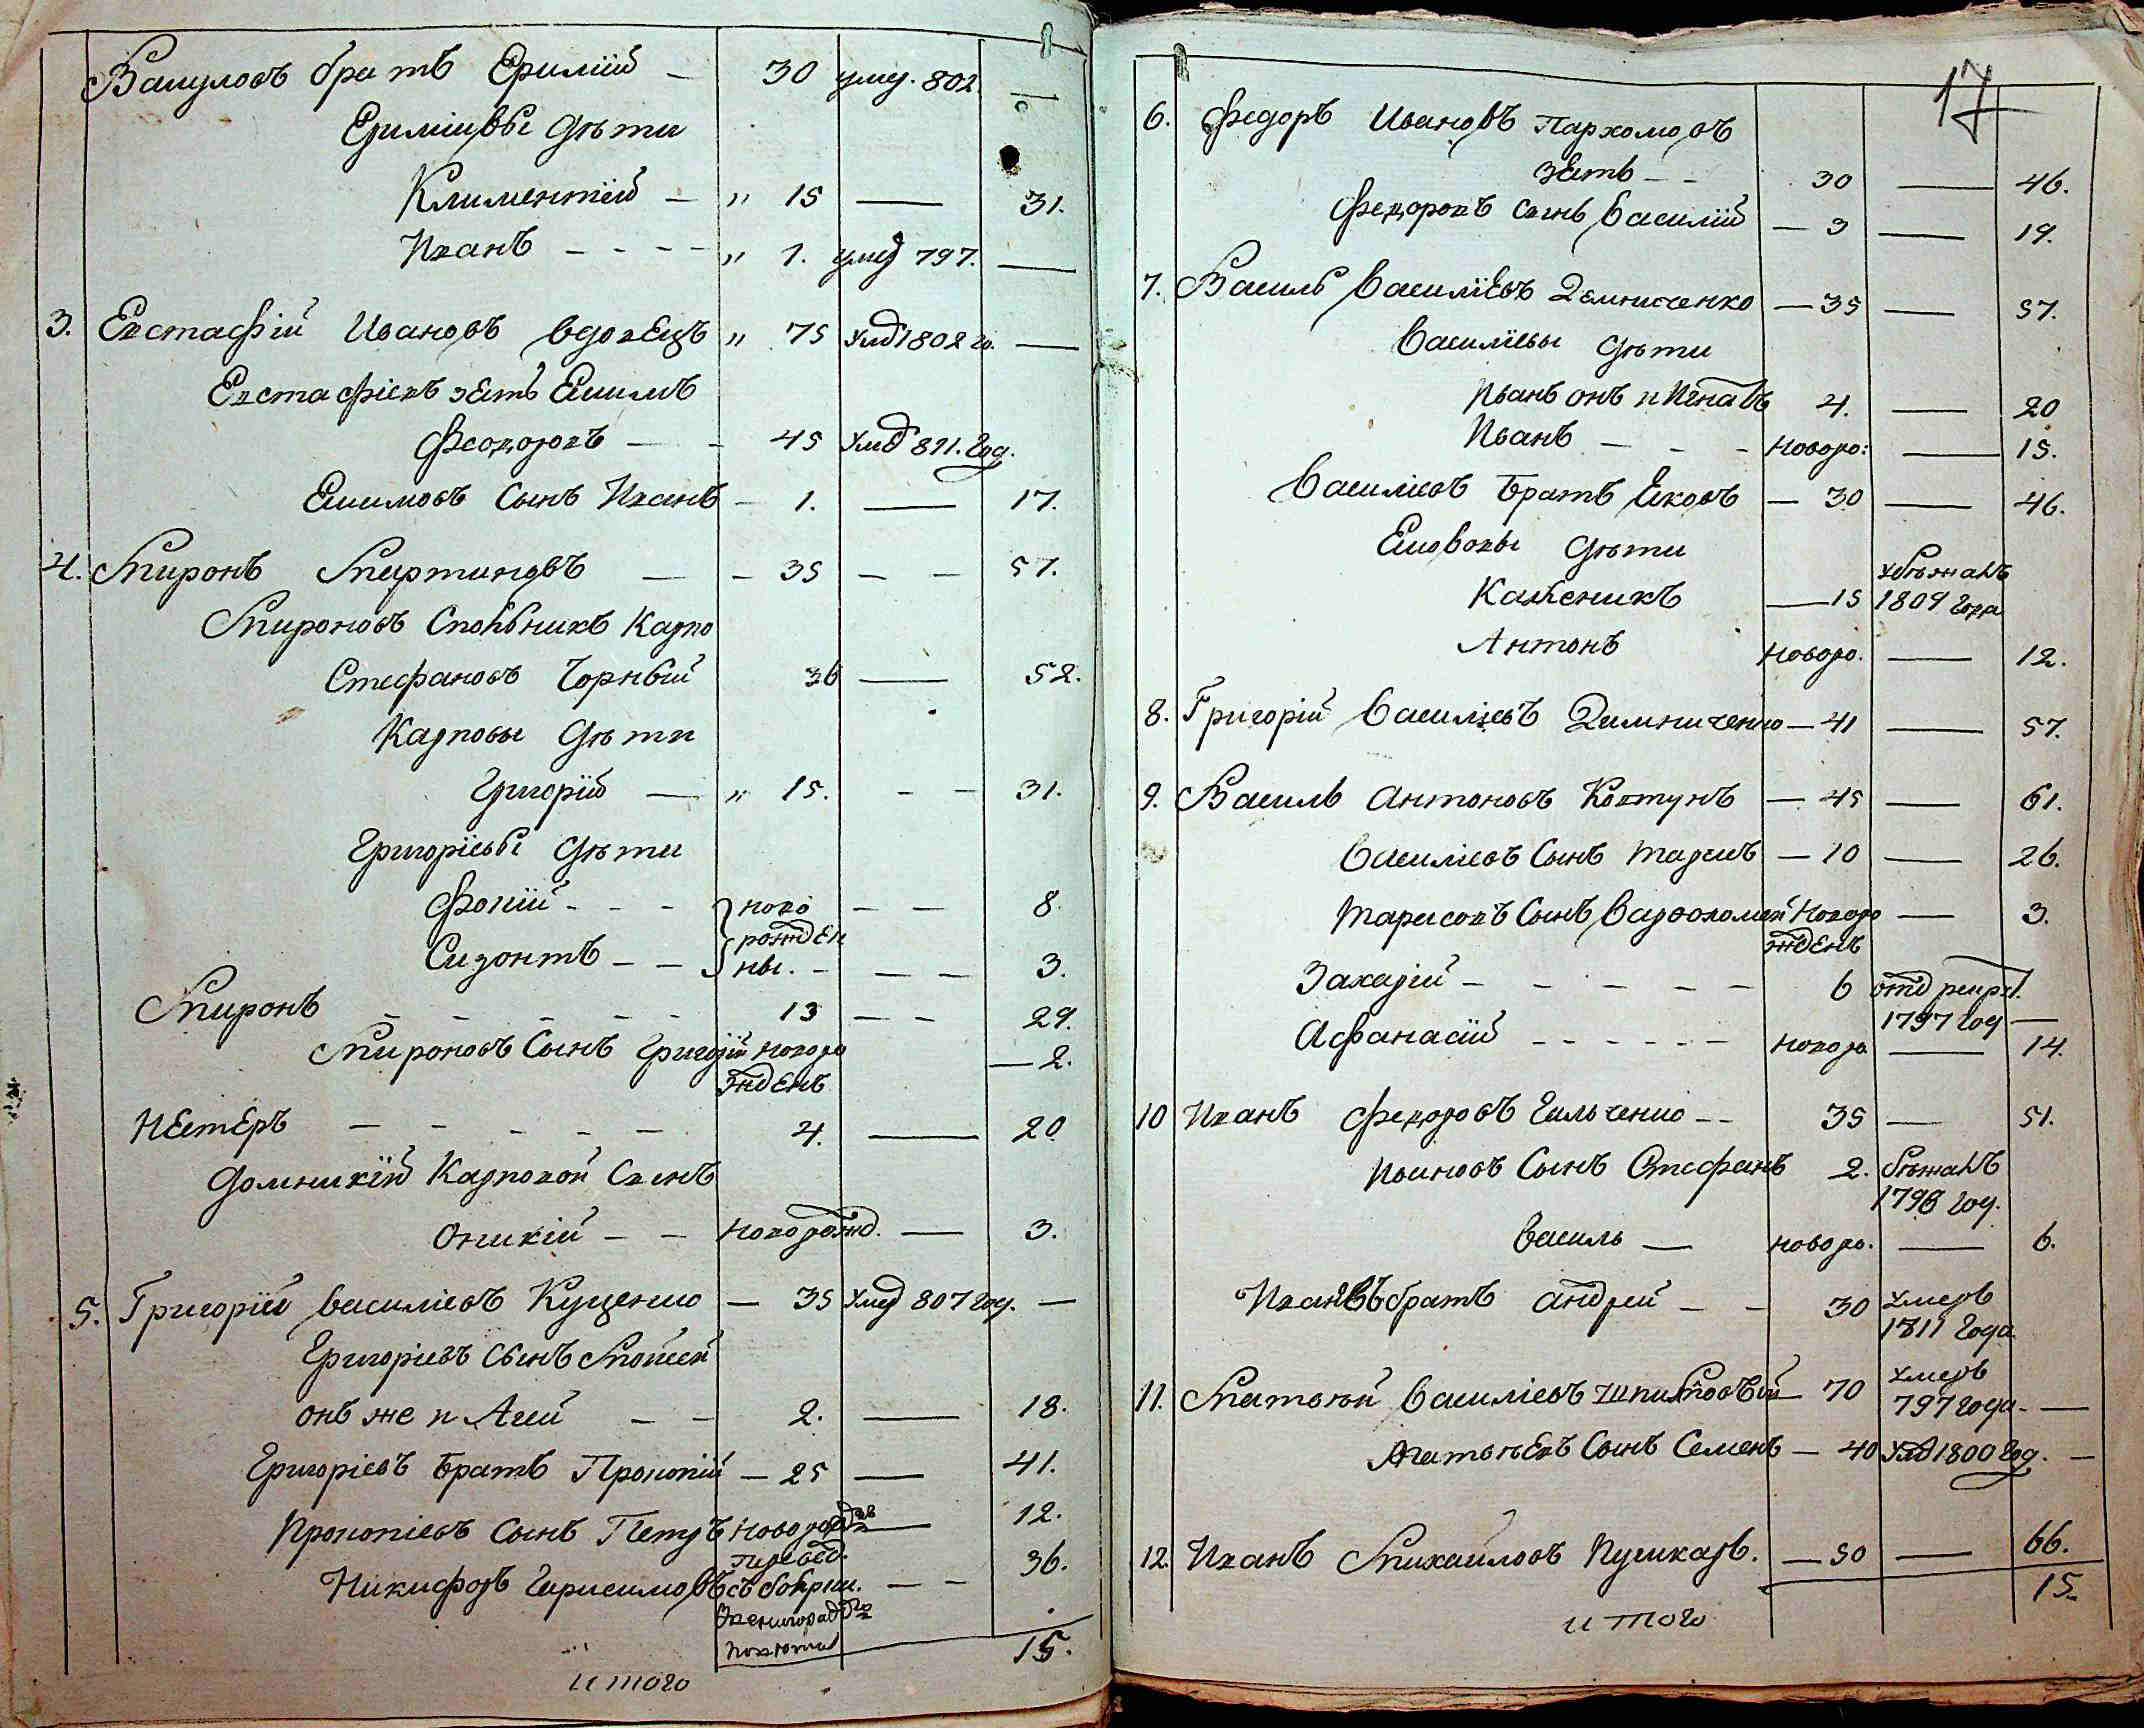 Вакуловъ братъ Ерилий — 30 умер. 802. —
Ерилиевы дѣти
Климентїй — " 15 — 31.
Иванъ - - - - " 1. умер 797. —
3. Евстафїй Ивановъ вдовецъ " 75 умер 1802 го. —
Евстафїевъ зять Якимъ
Феодоровъ — - 45 умер 811. год.
Якимовъ сынъ Иванъ - 1. — 17.
4. Миронъ Мартиновъ — - 35 - - 51.
Мироновъ спольникъ Карпо
Стефановъ Чорный 36 — 52.
Карповы дѣти
Григорїй — " 15. - - 31.
Григорїевы дѣти
Фокїй - - - ново - - 8.
рожден
Сизонтъ - - ны. - - - 3.
Миронъ - - - - - 13 - - 29.
Мироновъ сынъ Григорїй новоро — 2.
жденъ
Нестеръ - - - - - 4. — 20
Домникїй Карповой сынъ
Оникїй - - новорожд. — 3.
5. Григорїй Василїевъ Куценко — 35 умер 807 год. —
Григорїевъ сынъ Моисей
онъ же и Агей - - 2. — 18.
Григорїевъ братъ Прокопїй — 25 — 41.
Прокопїевъ сынъ Петръ новорожд — 12.
перевед.
Никифоръ Герасимовъ съ - - 36.
Звенигород
повѣта
итого 15.
17
6. Федоръ Ивановъ Пархомовъ
зять - - 30 — 46.
Федоровъ сынъ Василїй — 3 — 19.
7. Василь Василїевъ Димниченко — 35 — 51.
Василїевы дѣти
Иванъ онъ и Игнатъ 4. — 20
Иванъ - - - новоро: — 15.
Василїевъ братъ Яковъ — 30 — 46.
Яковвы дѣти
убѣжалъ
Каленикъ — 15 1809 года
Антонъ новоро. — 12.
8. Григорїй Василїевъ Димниченко — 41 — 57.
9. Василь Антоновъ Ковтунъ — 45 — 61.
Василїевъ сынъ Тарасъ — 10 — 26.
Тарасовъ сынъ Варфоломей новоро — 3.
жденъ
Захарїй - - - - - - 6 отд рекрут.
1797 год —
Афанасїй - - - - - - новоро — 14.
10 Иванъ Федоровъ Гальченко - - 35 — 51.
Ивановъ сынъ Стефанъ 2. бѣжалъ
1798 год.
Василь — новоро. — 6.
Ивановъ братъ Андрей - - 30 умеръ
1811 года
умеръ
11. Матвѣй Василїевъ — 70 797 года. —
Матвѣевъ сынъ Семенъ — 40 умер 1800 год. —
12. Иванъ Михайловъ Пушкаръ. — 50 — 66.
15.
итого